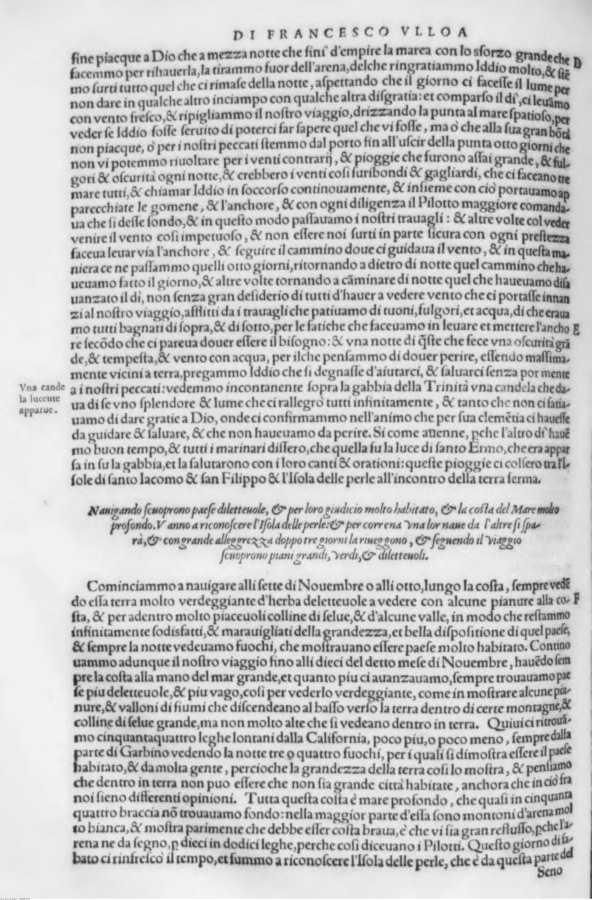 DI FRANCESCO VLLOA
fine piacque a Dio che a mezza notte che finí d'empire la marea con lo sforzo grande che D
facemmo per rihauerla, la tirammo fuor dell'arena, delche ringratiammo Iddio molto, & stẽ
mo surti tutto quel che ci rimase della notte, aspettando che il giorno ci facesse il lume per
non dare in qualche altro inciampo con qualche altra disgratia: et comparso il dí, ci leuãmo
con vento fresco, & ripigliammo il nostro viaggio, drizzando la punta al mare spatioso, per
veder se Iddio fosse seruito di poterci far sapere quel che vi fosse, ma ò che alla sua gran bõtà
non piacque, ò per i nostri peccati stemmo dal porto fin all'uscir della punta otto giorni che
non vi potemmo riuoltare per i venti contrarij, & pioggie che furono assai grande, & ful-
gori & oscurità ogni notte, & crebbero i venti cosi furibondi & gagliardi, che ci faceano tre
mare tutti, & chiamar Iddio in soccorso continouamente, & insieme con ciò portauamo ap
parecchiate le gomene, & l'anchore, & con ogni diligenza il Pilotto maggiore comanda-
ua che si desse fondo, & in questo modo passauamo i nostri trauagli: & altre volte col veder
venire il vento cosi impetuoso, & non essere noi surti in parte sicura con ogni prestezza
faceua leuar via l'anchore, & seguire il cammino doue ci guidaua il vento, & in questa ma-
niera ce ne passammo quelli otto giorni, ritornando a dietro di notte quel cammino che ha-
ueuamo fatto il giorno, & altre volte tornando a cãminare di notte quel che haueuamo disa
uanzato il dí, non senza gran desiderio di tutti d'hauer a vedere vento che ci portasse innan
zi al nostro viaggio, afflitti da i trauagli che patiuamo di tuoni, fulgori, et acqua, di che eraua
mo tutti bagnati di sopra, & di sotto, per le fatiche che faceuamo in leuare et mettere l'ancho E
re secõdo che ci pareua douer essere il bisogno: & vna notte di q̃ste che fece vna oscurità grã
de, & tempesta, & vento con acqua, per ilche pensammo di douer perire, essendo massima-
mente vicini a terra, pregammo Iddio che si degnasse d'aiutarci, & saluarci senza por mente
a i nostri peccati: vedemmo incontanente sopra la gabbia della Trinità vna candela che da-
Vna cande
la lucente
apparue.
ua di se vno splendore & lume che ci rallegrò tutti infinitamente, & tanto che non ci satia-
uamo di dare gratie a Dio, onde ci confirmammo nell'animo che per sua clemẽtia ci hauesse
da guidare & saluare, & che non haueuamo da perire. Si come auenne, p̱che l'altro dí hauẽ
mo buon tempo, & tutti i marinari dissero, che quella fu la luce di santo Ermo, che era appar
sa in su la gabbia, et la salutarono con i loro canti & orationi: queste pioggie ci colsero tra l'I-
sole di santo Iacomo & san Filippo & l'Isola delle perle all'incontro della terra ferma.
Nauigando scuoprono paese diletteuole, & per loro giudicio molto habitato, & la costa del Mare molto
profondo. Vanno a riconoscere l'Isola delle perle: & per correna vna lor naue da l'altre si spa-
rà, & con grande allegrezza doppo tre giorni la riueggono, & seguendo il viaggio
scuoprono piani grandi, verdi, & diletteuoli.
Cominciammo a nauigare alli sette di Nouembre o alli otto, lungo la costa, sempre vedẽ
do essa terra molto verdeggiante d'herba deletteuole a vedere con alcune pianure alla co- F
sta, & per adentro molto piaceuoli colline di selue, & d'alcune valle, in modo che restammo
infinitamente sodisfatti, & marauigliati della grandezza, et bella dispositione di quel paese,
& sempre la notte vedeuamo fuochi, che mostrauano essere paese molto habitato. Contino
uammo adunque il nostro viaggio fino alli dieci del detto mese di Nouembre, hauẽdo sem
pre la costa alla mano del mar grande, et quanto piu ci auanzauamo, sempre trouauamo pae
se piu deletteuole, & piu vago, cosi per vederlo verdeggiante, come in mostrare alcune pia-
nure, & valloni di fiumi che discendeano al basso verso la terra dentro di certe montagne, &
colline di selue grande, ma non molto alte che si vedeano dentro in terra. Quiui ci ritrouã-
mo cinquantaquattro leghe lontani dalla California, poco piu, o poco meno, sempre dalla
parte di Garbino vedendo la notte tre o quattro fuochi, per i quali si dimostra essere il paese
habitato, & da molta gente, percioche la grandezza della terra cosi lo mostra, & pensiamo
che dentro in terra non può essere che non sia grande città habitate, anchora che in ciò fra
noi sieno differenti opinioni. Tutta questa costa è mare profondo, che quasi in cinquanta
quattro braccia nõ trouauamo fondo: nella maggior parte d'essa sono montoni d'arena mol
to bianca, & mostra parimente che debbe esser costa braua, è che vi sia gran reflusso, p̱che l'a-
rena ne da segno, p̱ dieci in dodici leghe, perche cosi diceuano i Piloti. Questo giorno di sa-
bato ci rinfrescò il tempo, et fummo a riconoscere l'Isola delle perle, che è da questa parte del
Seno